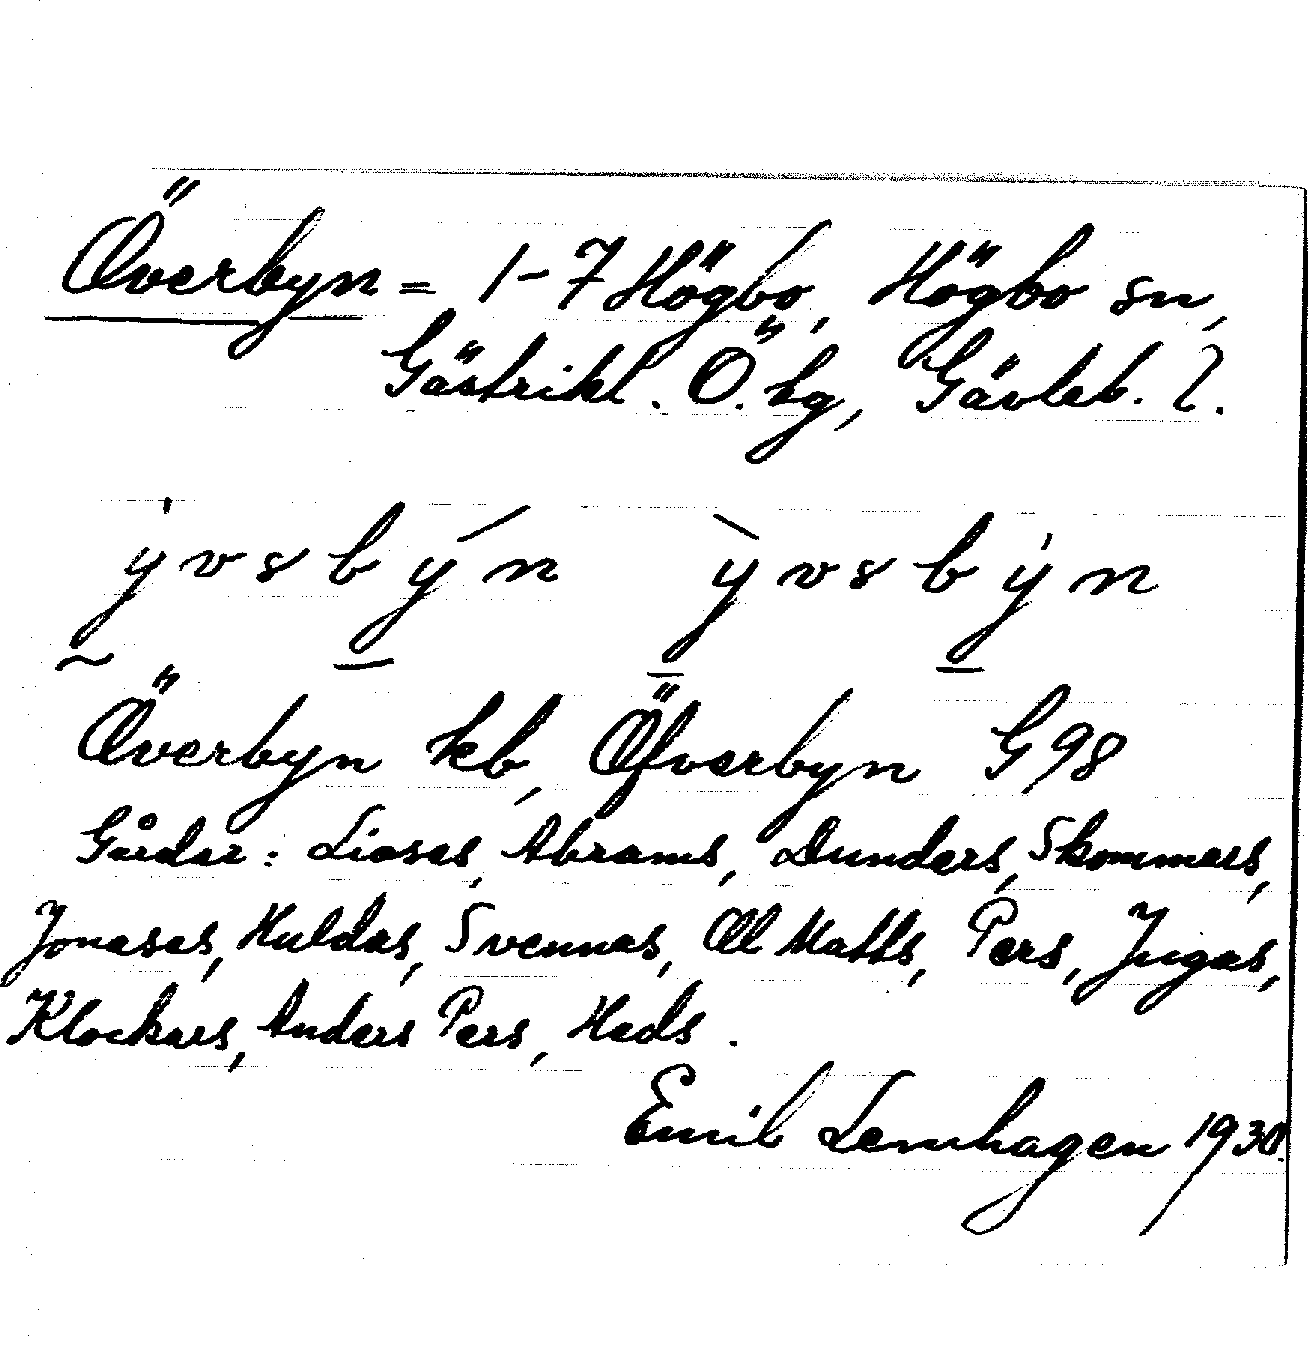 Överbyn = 1-7 Högbo, Högbo sn,
Gästrikl. Ö. hg, Gävleb. l.
yvsbýn ỳvsbyn
Överbyn kb, Öfverbyn G98
Gårdar: Liasas, Abrams, Dunders, Skommars,
Jonasas, Huldas, Svennas, Ol Matts, Pers, Jugas,
Klockars, Anders Pers, Heds.
Emil Lennhagen 1930.